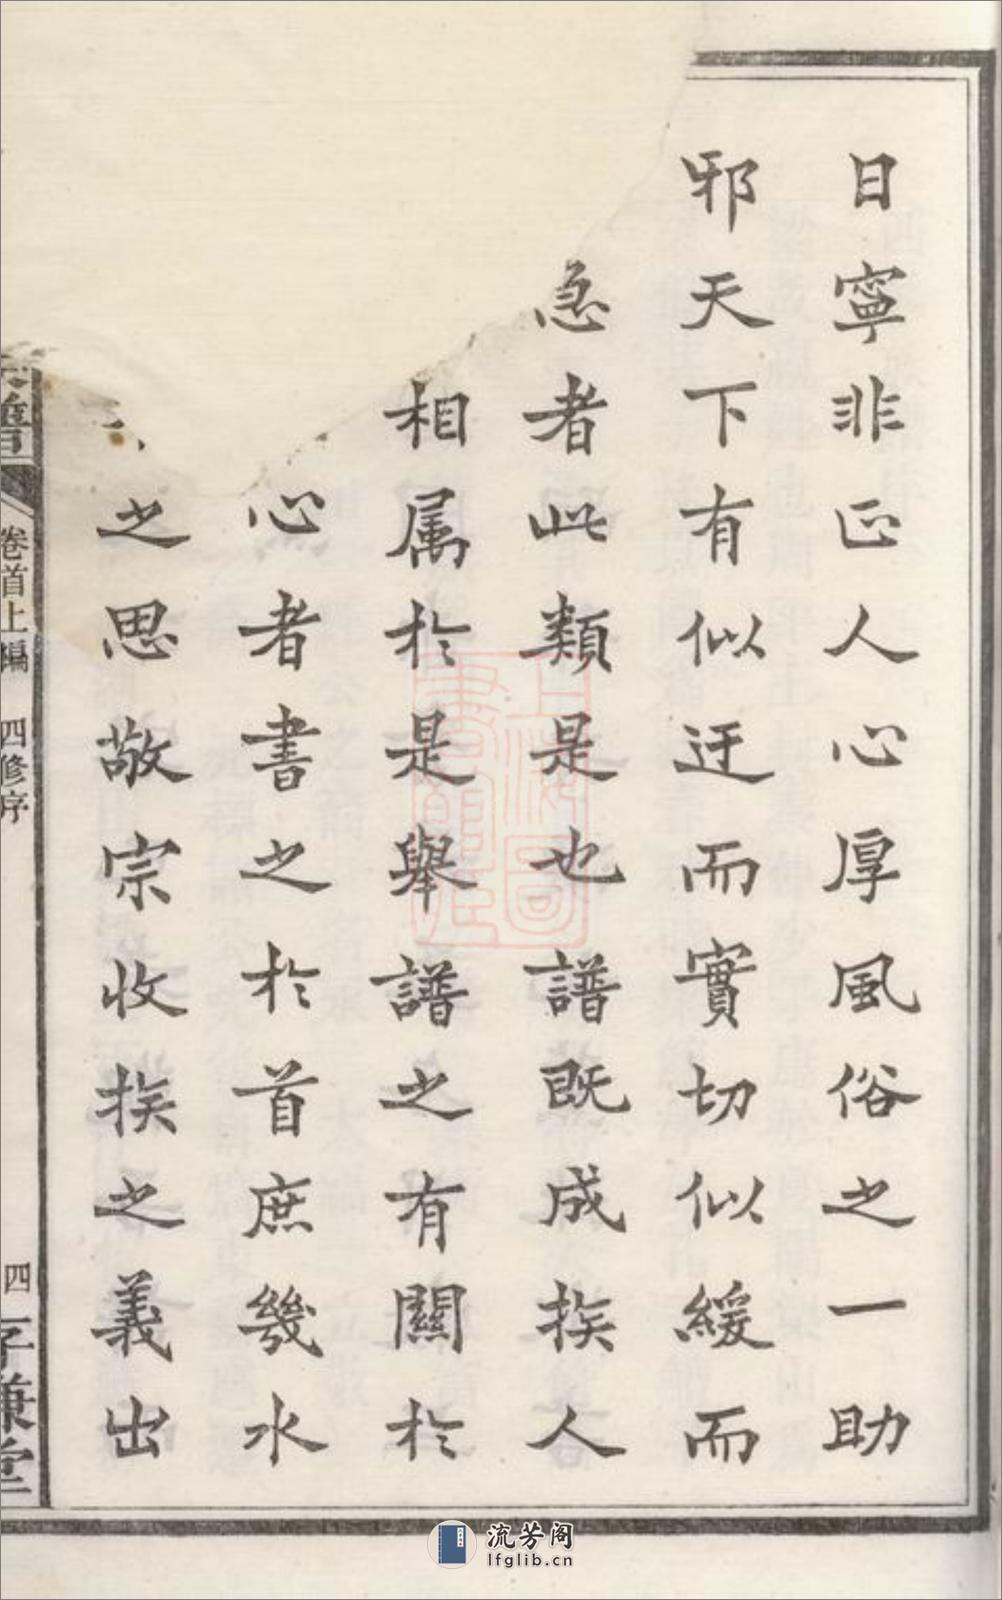 日寧非正人心厚風俗之一助
邪天下有似迂而實切似緩而
急者此類是也譜既成族人
相属於是舉譜之有關於
心者書之於首庶幾水
之思敬宗收族之義出
譜
卷首上編
四修序
四
子謙堂
上海圖書館藏
流芳阁
lfglib.cn